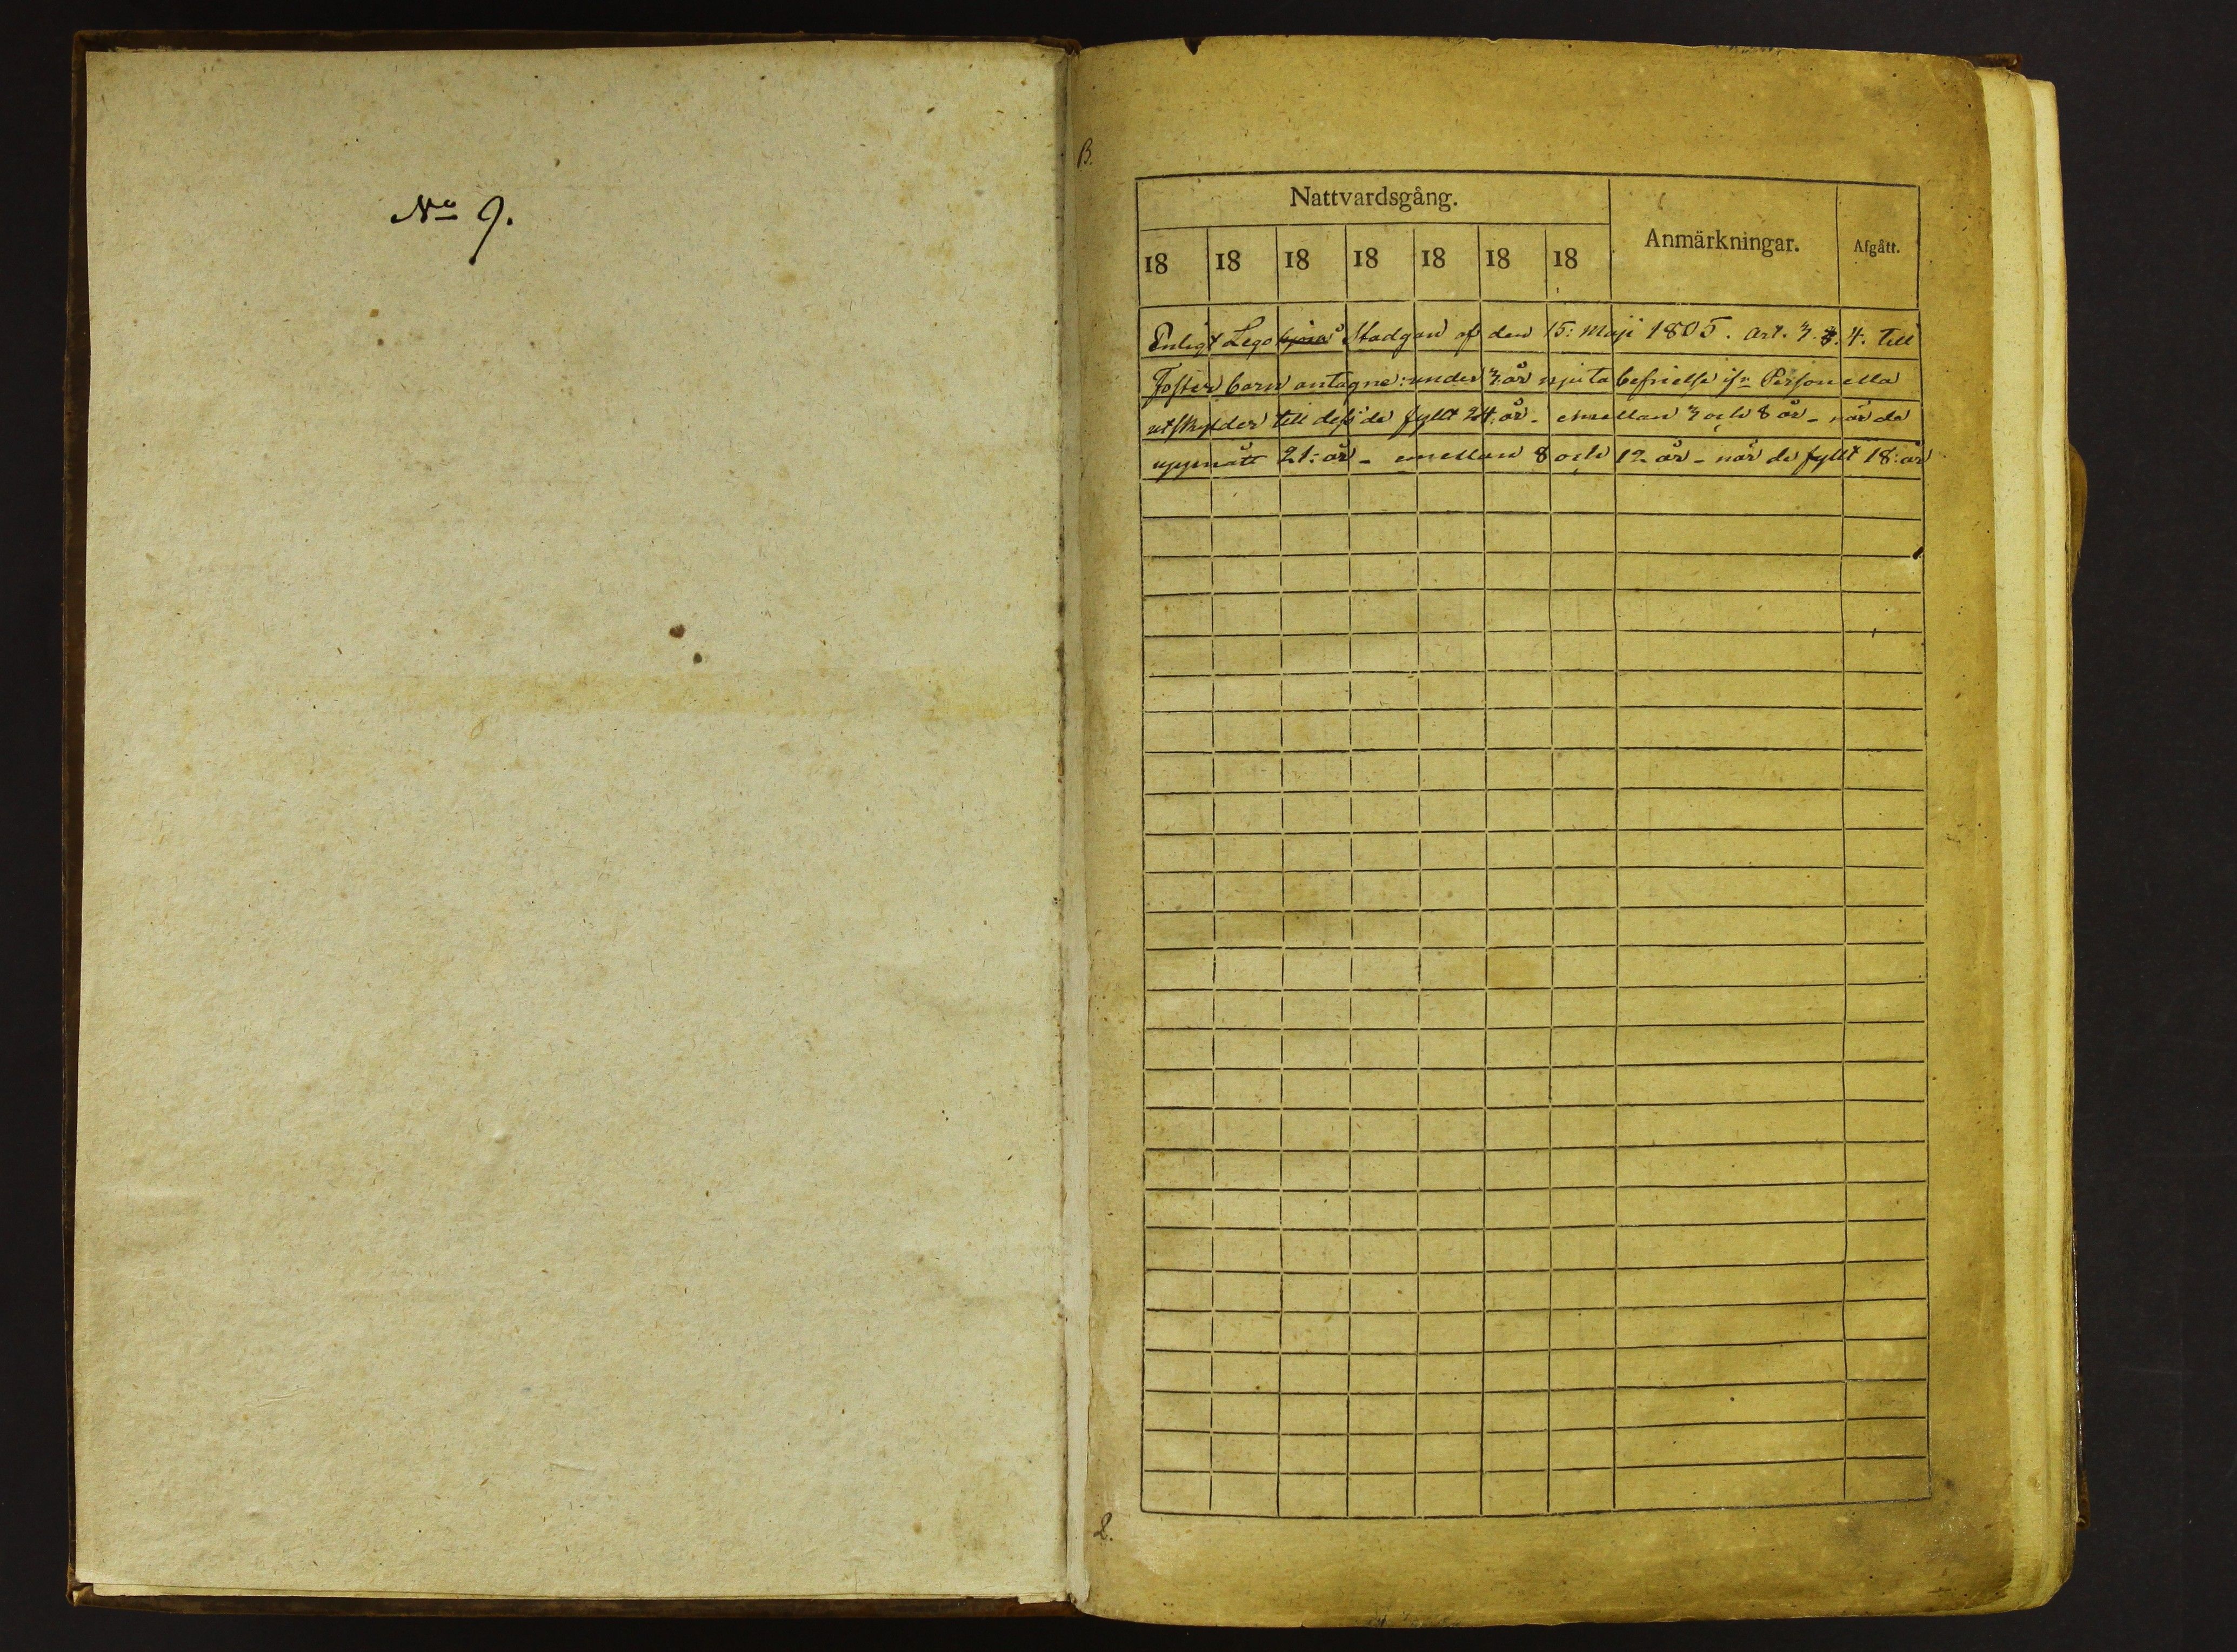 No 9.
B.
Nattvardsgång.
Anmärkningar.
Afgått.
18 18 18 18 18 18 18
Enligt Lego Stadgan af den 15: Maji 1805. Art. 3. 4. till
Foster barn antagne: under 3 år njuta befrielse ifn Personella
utskylder till dess de fyllt 24: år - emellan 3 och 8 år - när de
uppnått 21: år - emellan 8 och 12 år - när de fyllt 18: år
2.